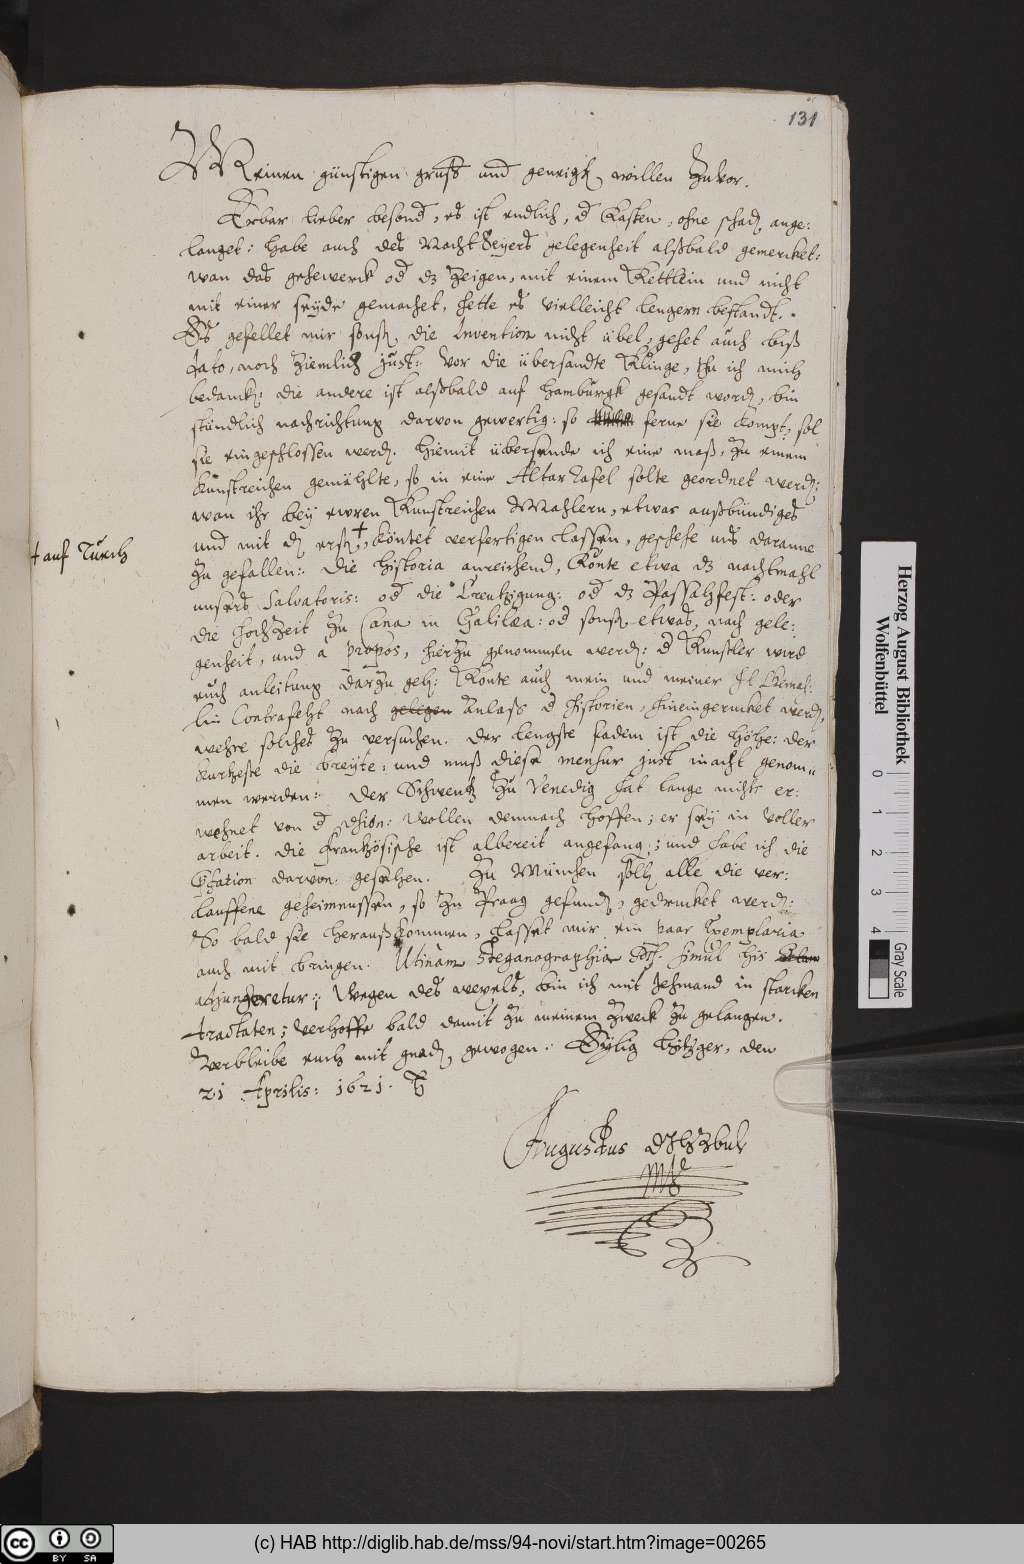 131
Meinen günstigen gruß und geneigt. willen zuvor.
Erbar lieber besond., es ist endlich, d Kasten, ohne schad. ange:
langet: habe auch des Nacht Seyers gelegenheit alßbald gemercket:
wan das gehewerck od dz zeigen, mit einem Kettlein und nicht
mit einer seyde gemachet, hette es vielleicht lengern bestandt.
Es gefellet mir sonst, die Invention nicht übel, gehet auch biß
dato, noch ziemlich just: Vor die übersandte Klinge, thu ich mich
bedanck.: die andere ist alßbald auf Hamburgk gesandt word., bin
stündlich nachrichtung darvon gewertig: so ferne sie kompt, sol
sie eingeschlossen werd. Hiemit übersende ich eine maß, zu einem
kunstreichen gemählte, so in eine Altar Tafel solte geordnet werd.:
wan ihr bey ewren Kunstreichen Mahlern, etwas außbündiges
und mit d. erst, + köntet verfertigen lassen, geschehe uns daranne
+ auf Tuech
zu gefallen: Die Historia anreichend, Könte etwa dz nachtmahl
unsers Salvatoris: od die Creutzigung: od dz Passahfest: oder
die hochzeit zu Cana in Galilæa: od sonst etwas, nach gele:
genheit, und à propos, hierzu genommen werd.: d Kunstler wird
euch anleitung darzu geb.: Könte auch mein und meiner hl Gemah:
lin Contrafeht nach gelegen Anlaß d historien, hineingerucket werd.,
wehre solches zu versuchen. Der lengste fadem ist die höhe: der
kurtzeste die breyte: und muß diese mensur just in acht genom:
men werden: Der Schwenb zu Venedig hat lange nichts er:
wehnet von d Chion: Wollen demnach hoffen; er sey in voller
arbeit. Die frantzösische ist albereit angefang.; und habe ich die
darvon gesehen. Zu München soll. alle die ver:
lauffene geheimnussen, so zu Praag gefund., gedrucket werd.:
So bald sie herauß kommen, lasset mir ein paar Exemplaria
auch mit bringen. Utinam Steganographia simul his
adjungeretur: Wegen des wexels, bin ich mit Jehmand in starcken
tractaten; Verhoffe bald damit zu meinem Zweck zu gelangen.
Verbleibe euch mit gnad. gewogen. Eylig Hitzger, den
21 Aprilis: 1621.
Augustus DJHZBuL
Mp
Herzog August Bibliothek
Wolfenbüttel
0 1 2 3 4
Gray Scale
cc BY SA
(c) HAB http://diglib.hab.de/mss/94-novi/start.htm?image=00265